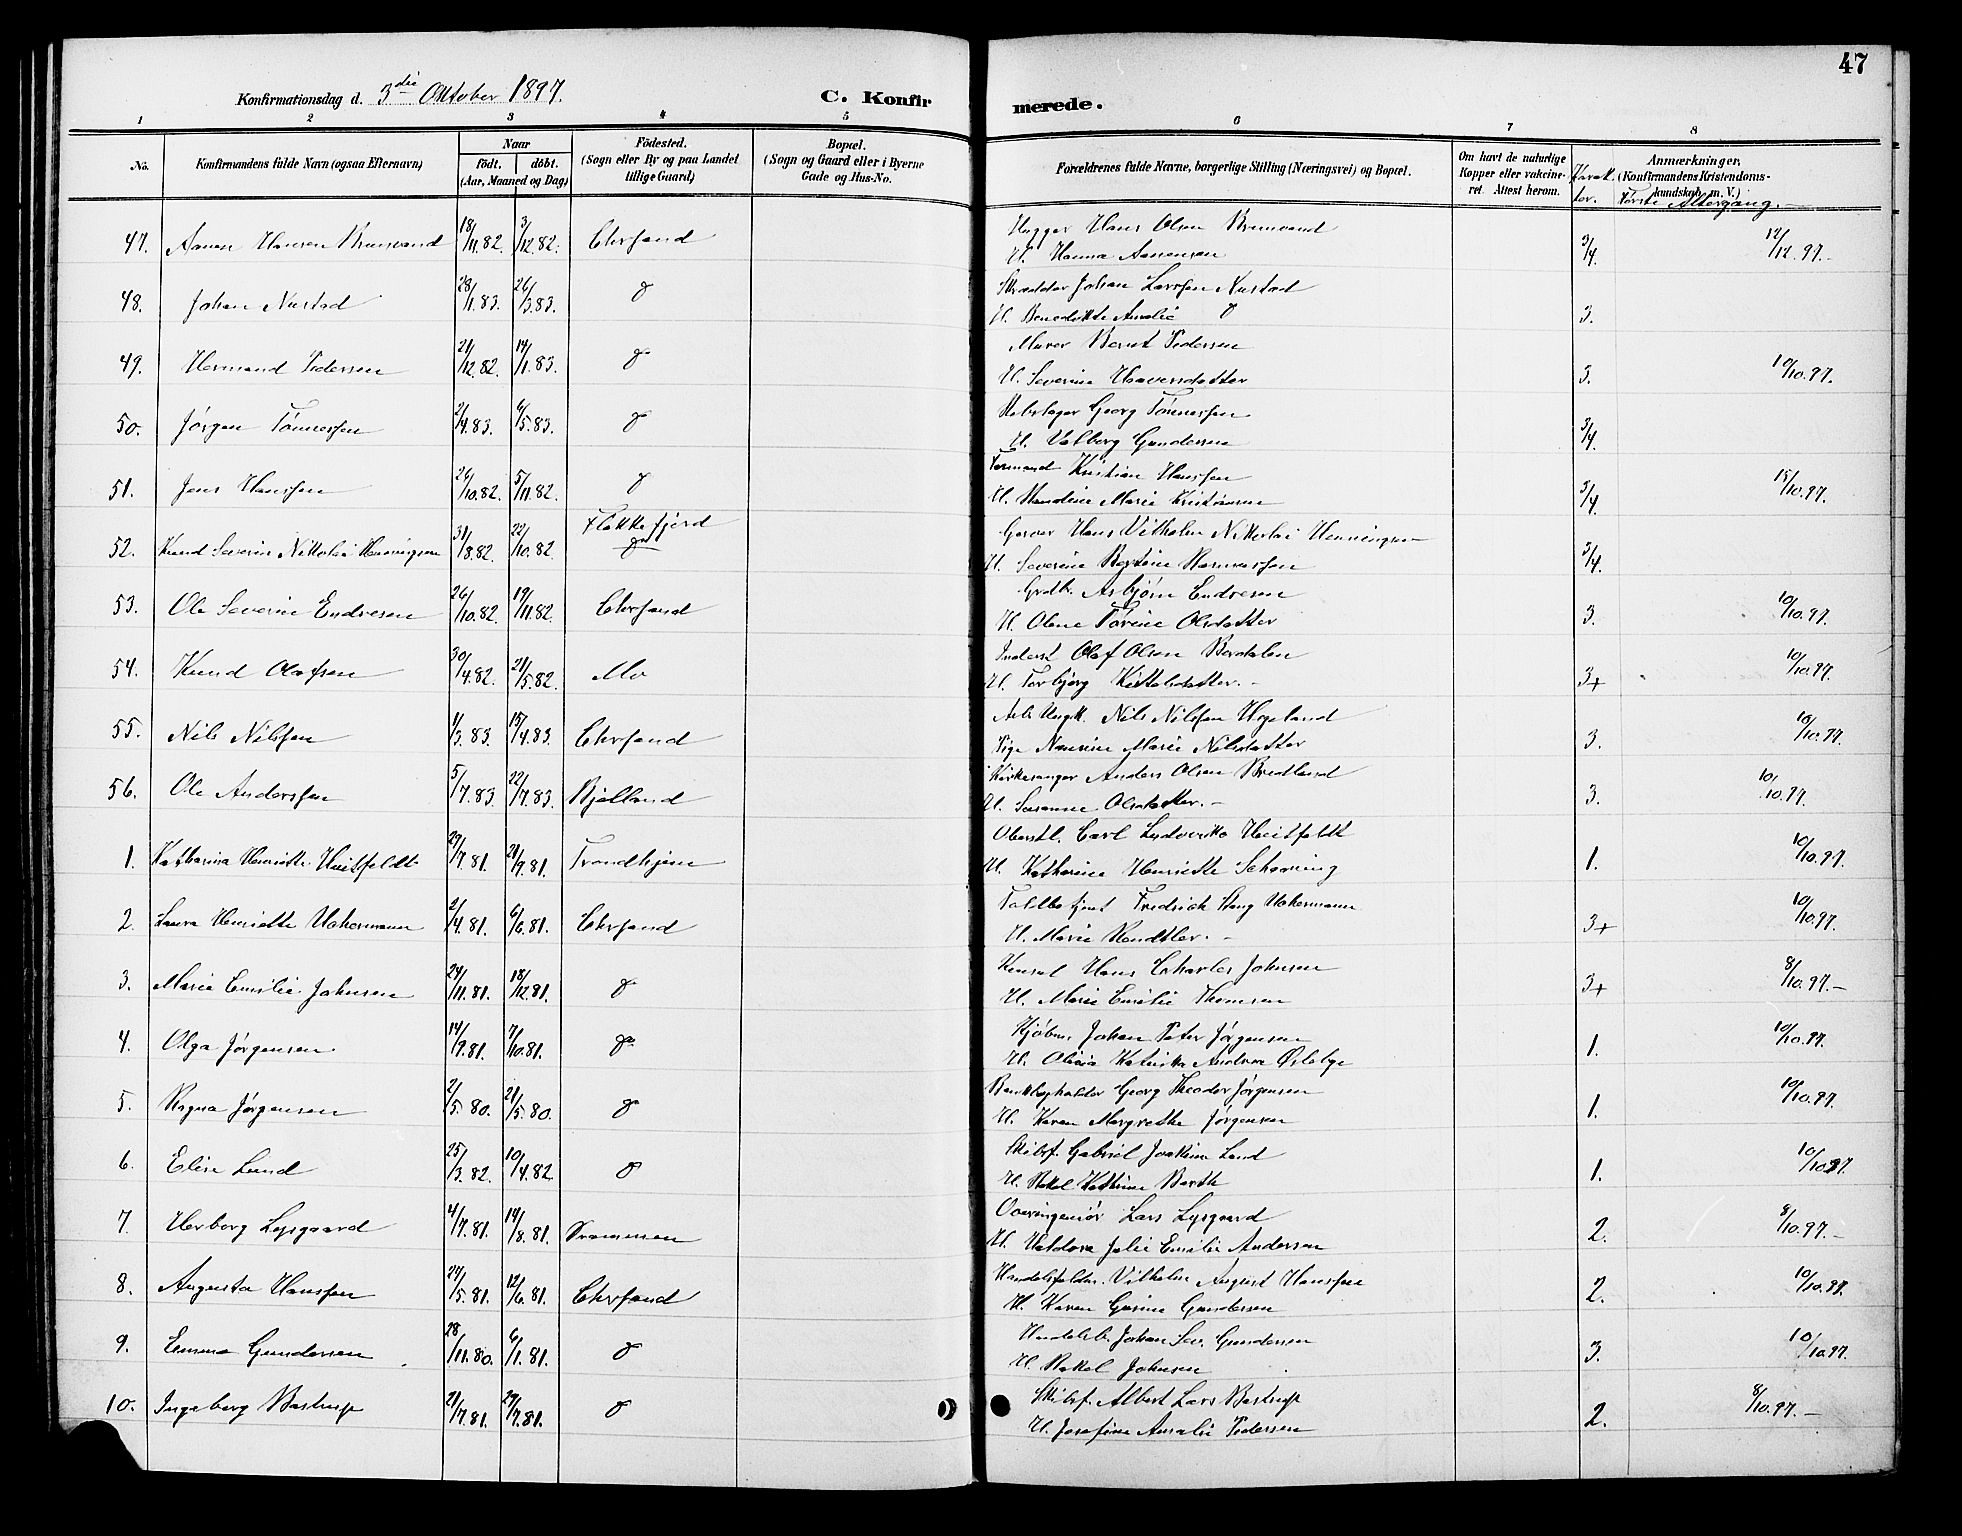 47
Konfirmationsdag d. 3die Oktober 1897.
C. Konfirmerede.
1 2 3 4 5 6 7 8
No.
Konfirmandens fulde Navn (ogsaa Efternavn)
Naar
födt. döbt.
(Aar, Maaned og Dag)
Födested.
(Sogn eller By og paa Landet tillige Gaard)
Bopæl.
(Sogn og Gaard eller i Byerne Gade og Hus-No.
Forældrenes fulde Navne, borgerlige Stilling (Næringsvei) og Bopæl.
Om havt de naturlige Kopper eller vakcineret. Attest herom.
Karakter.
Anmærkninger.
(Konfirmandens Kristendomskundskab m. V.)
Første Altergang.
47. Hansen 18/11.82. 3/12.82. Chrsand Hans Olsen 3/4. 12/12.97.
H. Hanna Aanensen
48. Johan Nustad 28/1.83. 26/3.83. Johan Larssen Nustad
H. Benedikte Amalie 3.
49. Hermand Pedersen 21/12.82. 14/1.83. Murer Bernt Pedersen
H. Severine 3. 10/10.97.
50. Jörgen Tönnessen 2/4.83. 6/5.83. Georg Tönnessen
H. Valborg Gundersen 3/4.
51. Jens Hanssen 24/10.82. 5/11.82. Formand Kristian Hanssen
H. Marie Kristiansen 3/4. 15/10.97.
52. Knud Severin Nikolai Henningsen 31/8.82 22/10.82 Flekkefjord Garver Hans Vilhelm Nikolai Henningsen
H. Severine 3/4.
53. Ole Severin Endresen 26/10.82. 19/11.82. Chrsand Asbjörn Endresen
H. Olene Torine Olsdatter 3. 10/10.97.
54. Knud Olafsen 30/4.82. 21/5.82. Mo Inderst Olaf Olsen
H. Torbjörg 3+ 10/10.97.
55. Nils Nilssen 1/3.83. 15/4.83. Chrsand Nils Nilssen
Pige Marie Nilsdatter 3. 10/10.97.
56. Ole Anderssen 5/7.83. 22/7.83. Bjelland Kirkesanger Anders Olsen
H. Susanne Olsdatter. 3. 10/10.97.
1. Katharina Henriette Huitfeldt 29/7.81. 21/9.81. Trondhjem Oberstl. Carl Huitfeldt
H. Katharine Henriette 1. 10/10.97.
2. Laura Henriette Uckermann 2/4.81. 6/6.81. Chrsand Fredrik Uckermann
H. Marie 3+ 10/10.97.
3. Marie Emilie Johnsen 24/11.81. 18/12.81. Konsul Hans Charles Johnsen
H. Marie Emilie Thomsen 3+ 8/10.97.
4. Olga Jörgensen 14/9.81. 7/10.81. Kjöbm. Johan Peter Jörgensen
H. Andrea 1. 10/10.97.
5. Ragna Jörgensen 2/5.80. 21/5.80 Georg Theodor Jörgensen
H. Karen Margrethe Jörgensen 1. 10/10.97.
6. Elise Lund 25/3.82. 10/4.82. Skibsf. Gabriel Joakim Lund
H. Rakel Kathrine Barth 1. 10/10.97
7. Herborg Lysgaard 4/7.81. 14/8.81. Drammen Overingeniör Lars Lysgaard
H. Julie Emilie Andersen 2. 8/10.97.
8. Augusta Hanssen 24/5.81. 12/6.81. Chrsand Vilhelm August Hanssen
H. Karen Gurine Gundersen 2. 10/10.97.
9. Emma Gundersen 28/11.80. 6/1.81. Johan Sev. Gundersen
H. Rakel Johnsen 3. 10/10.97.
10. Ingeborg Bastrup 21/7.81. 29/7.81. Skibsf. Albert Lars Bastrup
H. Josefine Amalie Pedersen 2. 8/10.97.